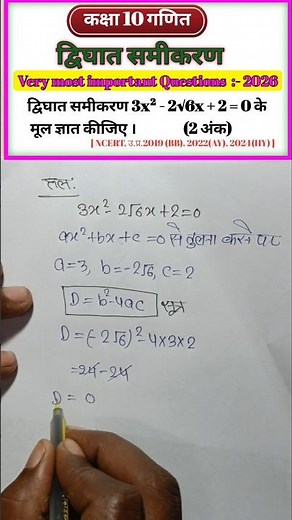 कक्षा 10 गणित
द्विघात समीकरण
Very most important Questions :- 2026
द्विघात समीकरण 3x² - 2√6x + 2 = 0 के
मूल ज्ञात कीजिए । (2 अंक)
[ NCERT, उ.प्र.2019 (BB), 2022(AY), 2024(HY) ]
हल:
3x² - 2√6x + 2 = 0
ax² + bx + c = 0 से तुलना करने पर
a = 3, b = -2√6, c = 2
D = b² - 4ac सूत्र
D = (-2√6)² - 4×3×2
= 24 - 24
D = 0